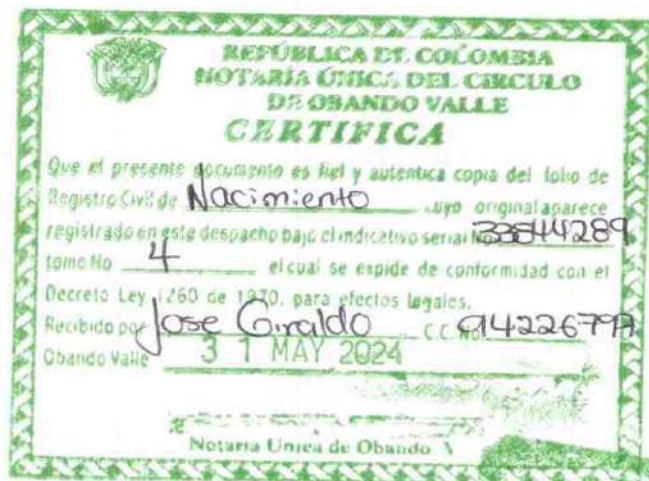 REPÚBLICA DE COLOMBIA
NOTARÍA ÚNICA DEL CIRCULO
DE OBANDO VALLE
CERTIFICA
Que el presente documento es fiel y autentica copia del folio de
Registro Civil de Nacimiento cuyo original aparece
registrado en este despacho bajo el indicativo serial No
tomo No 4 el cual se expide de conformidad con el
Decreto Ley 1260 de 1970, para efectos legales.
Recibido por Jose Giraldo C.C. No.
Obando Valle 31 MAY 2024
Notaria Unica de Obando V